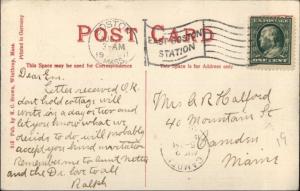 POST CARD
This Space may be used for Correspondence
This Space is for Address only.
Printed in Germany
BOSTON
3-AM
MASS.
STATION
ONE CENT
Dear Em.
Letter received O.K.
dont hold cottage will
write in a day or two and
let you know what we
decide to do, will probably
accept your kind invitation
Remember me to Aunt Hattie
and the Dr. love to all
Ralph
Mrs A R Halford
40 Mountain St
Camden
Maine